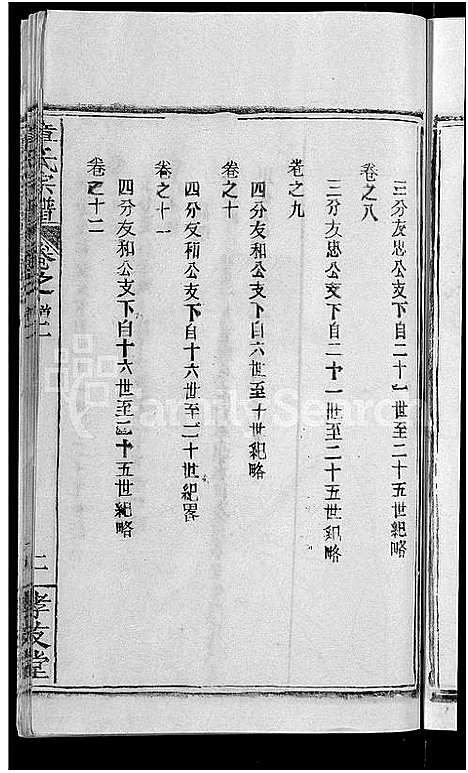 三分友忠公支下自二十一世至二十五世紀略
卷之八
三分友忠公支下自二十一世至二十五世紀略
卷之九
四分友和公支下自六世至十世紀略
卷之十
四分友和公支下自十六世至二十世紀畧
卷之十一
四分友和公支下自十六世至二十五世紀略
卷之十二
章氏宗譜
卷之首
二
孝友堂
FamilySearch